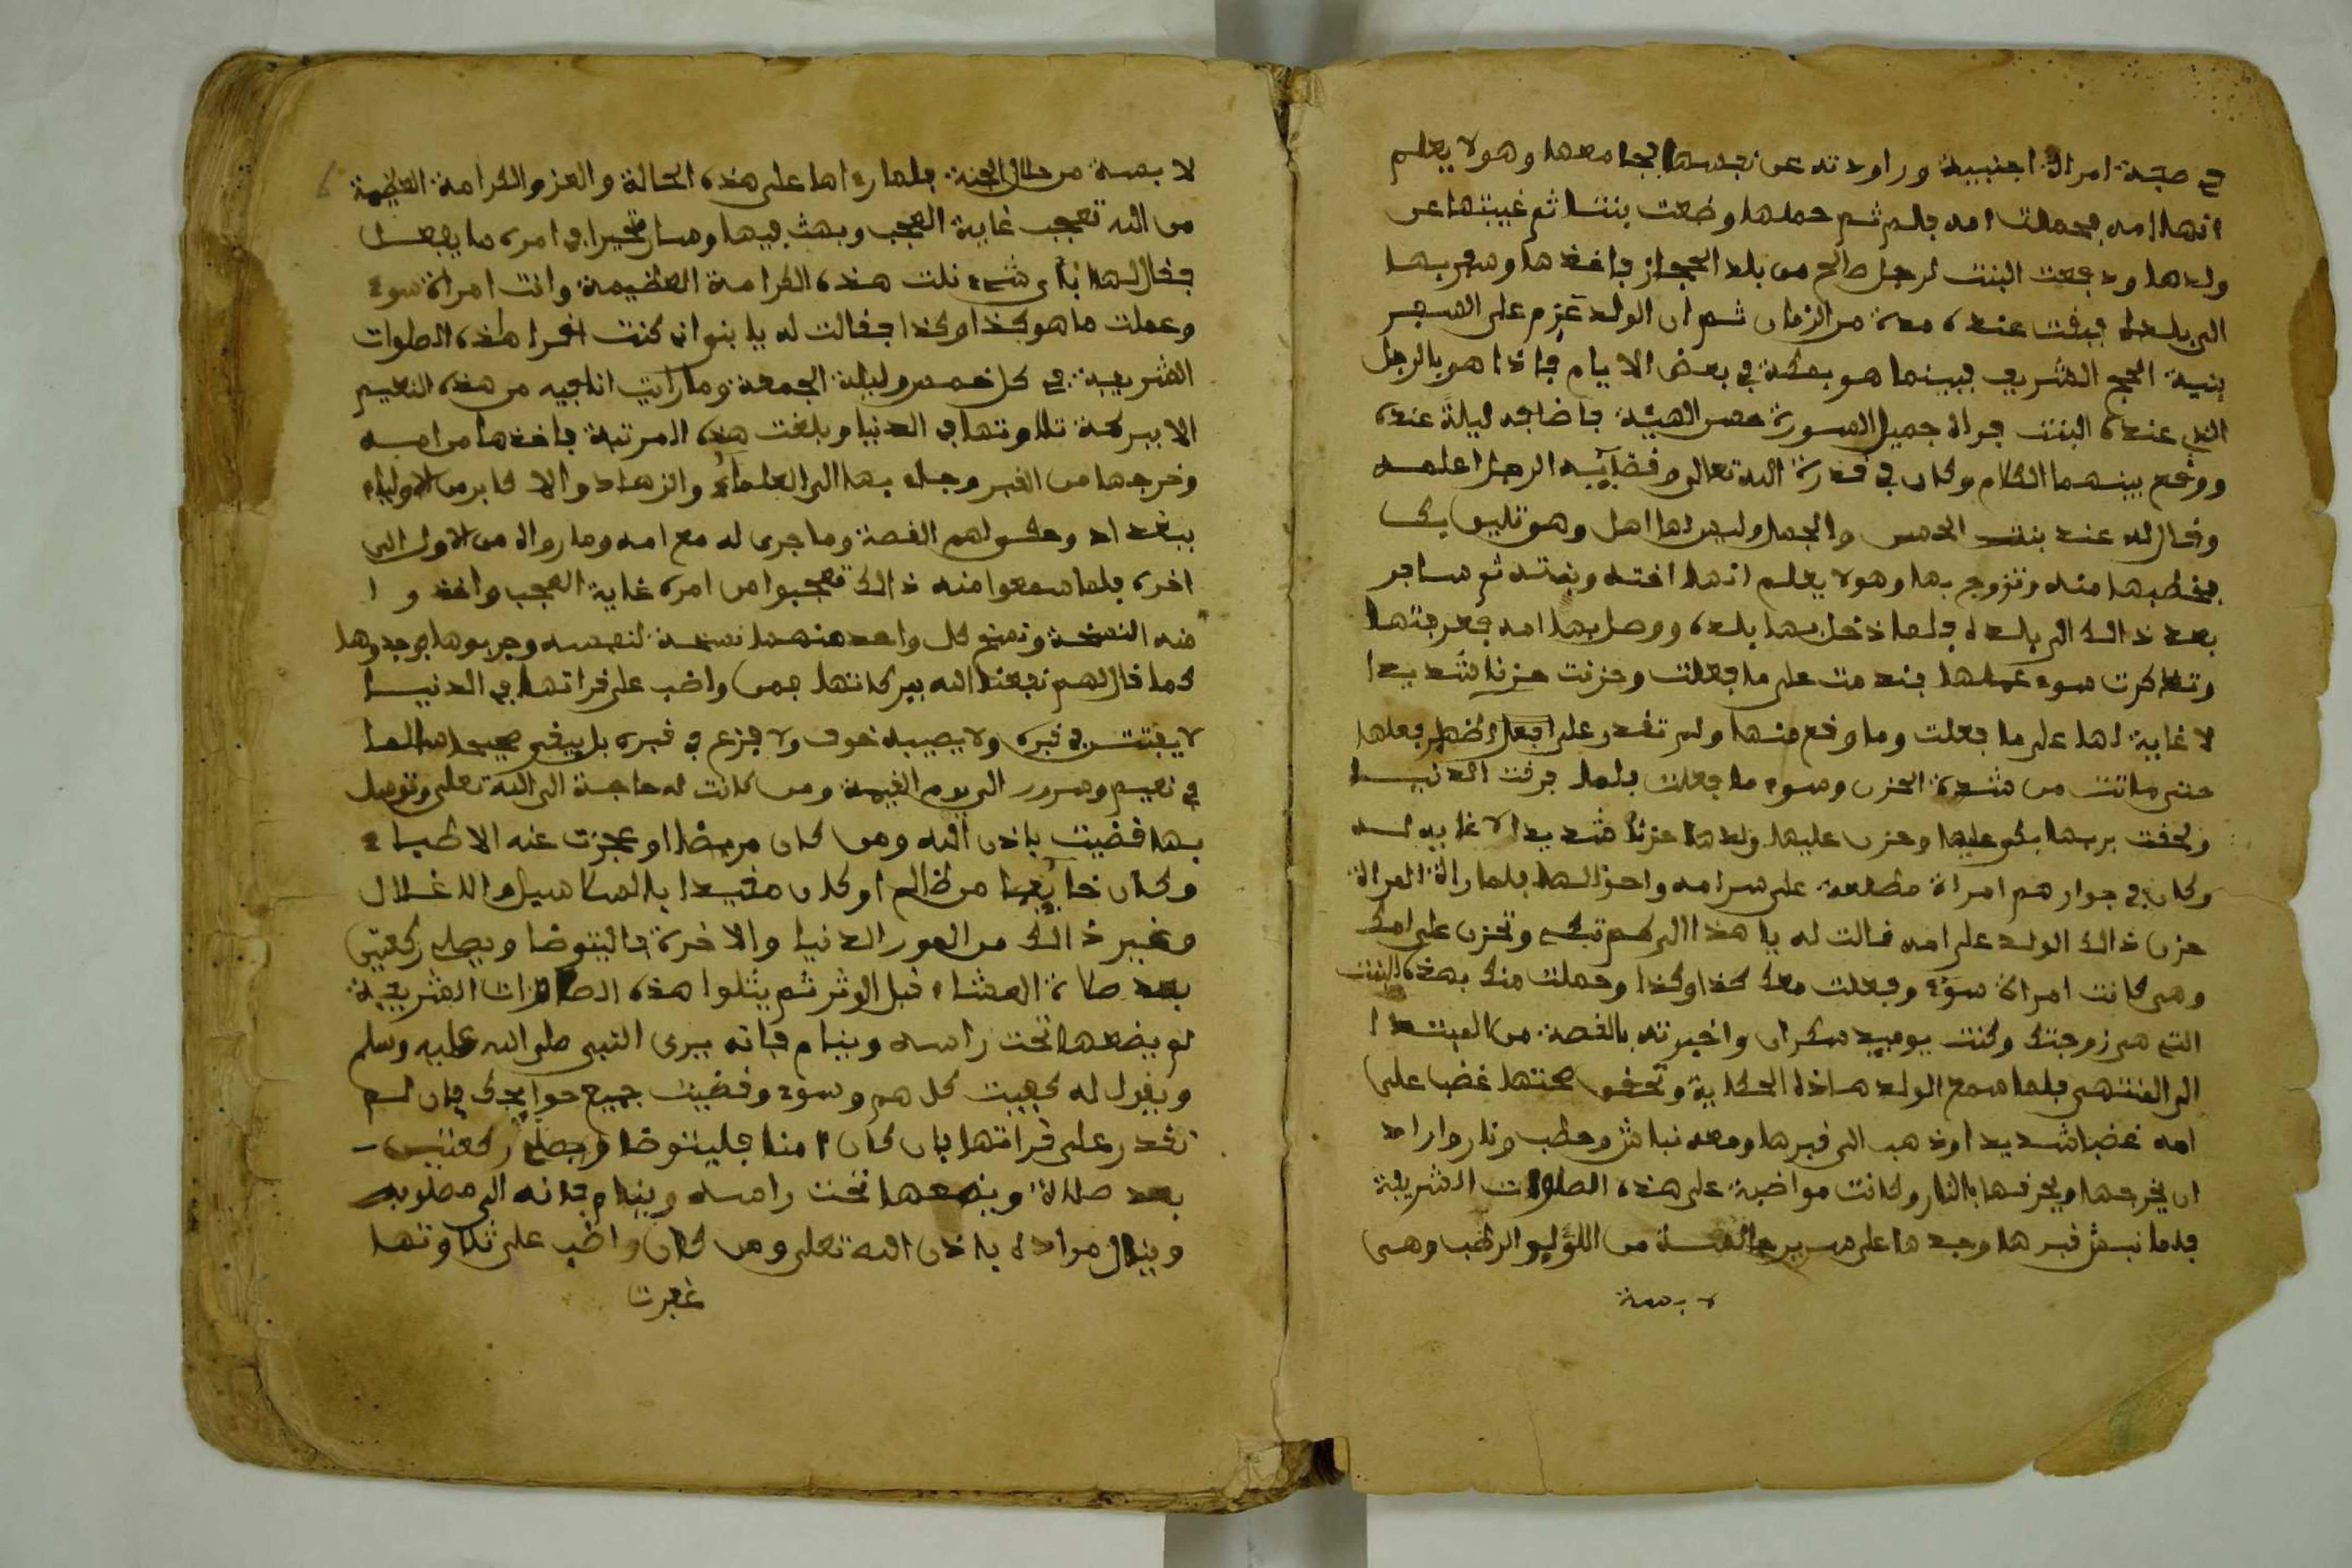 في صفة امراة اجنبية وراودته عن نفسها فجامعها وهو لا يعلم
انها امه فحملت امه فلم تم حملها وضعت بنتا ثم غيبتها عن
ولدها ودفعت البنت لرجل صالح من بلد الحجاز فاخذها وسفر بها
الى بلده فبقت عنده مدة من الزمان ثم ان الولد عزم على السفر
بنية الحج الشريف فبينما هو بمكة في بعض الايام فاذا هو بالرجل
الذي عنده البنت فراه جميل الصورة حسن الهيئة فاضافه ليلة عنده
ووقع بينهما الكلام وكان في قدرة الله تعالى وقضآئيه الرجل اعلمه
وقال له عنده بنت الحسن والجمال وليس لها اهل وهو
فخطبها منه وتزوج بها وهو لا يعلم انها اخته وبنته ثم سافر
بعد ذالك الى بلده فلما دخل بها بلده ووصل بها امه فعرفتها
وتذاكرت سوء عملها فندمت على ما فعلت وحزنت حزنا شديدا
لا غاية لها على ما فعلت وما وقع منها ولم تقدر على فعلها
حتى ماتت من شدة الحزن وسوء ما فعلت فلما فرقت الدنيا
ولحقت بربها بكى عليها وحزن عليها ولدها حزنا شديدا لا غاية له
وكان في جوارهم امراة مطلعة على سر امه واحوالها فلما رات المراة
حزن ذالك الولد على امه قالت له يا هذا الى كم تبك وتحزن على امك
وهي كانت امراة سوء وفعلت معك كذا وكذا وحملت منك بهذه البنت
التي هي زوجتك وكنت يوميذ سكران واخبرته بالقصة من المبتدا
الى المنتهى فلما سمع الولد هاذه الحكاية وتحقق صحتها غضب على
امه غضبا شديدا وذهب الى قبرها ومعه نباش وحطب ونار واراد
ان يخرجها ويحرقها بالنار وكانت مواضبة على هذه الصلوات الشريفة
فلما نبش قبرها وجدها على سرير جالسة من اللؤليو الرطب وهي
لابسة
لابسة من حلل الجنة فلما رءاها على هذه الحالة والعز والكرامة العظيمة
من الله تعجب غاية العجب وبهث فيها وصار متحيرا في امره ما يفعل
فقال لها بأى شيء نلت هذه الكرامة العظيمة وانت امراة سوء
وعملت ما هو كذا وكذا فقالت له يا بنى اني كنت اقرا هذه الصلوات
الشريفة في كل خميس وليلة الجمعة وما رايت انا فيه من هذه النعيم
الا ببركة تلاوتها في الدنيا وبلغت هذه المرتبة فاخذها من امه
وخرجها من القبر وجاء بها الى العلماء والزهاد والاكابر من الاولياء
ببغداد وحكى لهم القصة وما جرى له مع امه وما رواه من الاول الى
اخره فلما سمعوا منه ذالك تعجبوا من امره غاية العجب واخذوا
منه النسخة ونسخ كل واحد منهما نسخة لنفسه وجربوها فوجدوها
كما قال لهم نفعنا الله ببركاتها فمن واضب على قراتها في الدنيا
لا يفتتن في قبره ولا يصيبه خوف ولا فزع في قبره بل يبقى صحيحا سالما
في نعيم وسرور الى يوم القيمة ومن كانت له حاجة الى الله تعلى وتوسل
بها قضيت باذن الله ومن كان مريضا او عجزت عنه الاطباء
وكان خايفا من ظالم او كان مقيدا بالسلاسيل والاغلال
وغير ذالك من امور الدنيا والاخرة فاليتوضا ويصلى ركعتين
بعد صلاة العشاء قبل الوثر ثم يتلوا هذه الصلوات الشريفة
ثم يضعها تحت راسه وينام فإنه يرى النبي صلى الله عليه وسلم
ويقول له كفيت كل هم وسوء وقضيت جميع حوايجك فإن لم
تقدر على قراتها بان كان امنا فليتوضا ويصل ركعتين
بعد صلاة ويضعها تحت راسه وينام فإنه الى مطلوبه
وينال مراده باذن الله تعلى ومن كان واظب على تلاوتها
غفرت